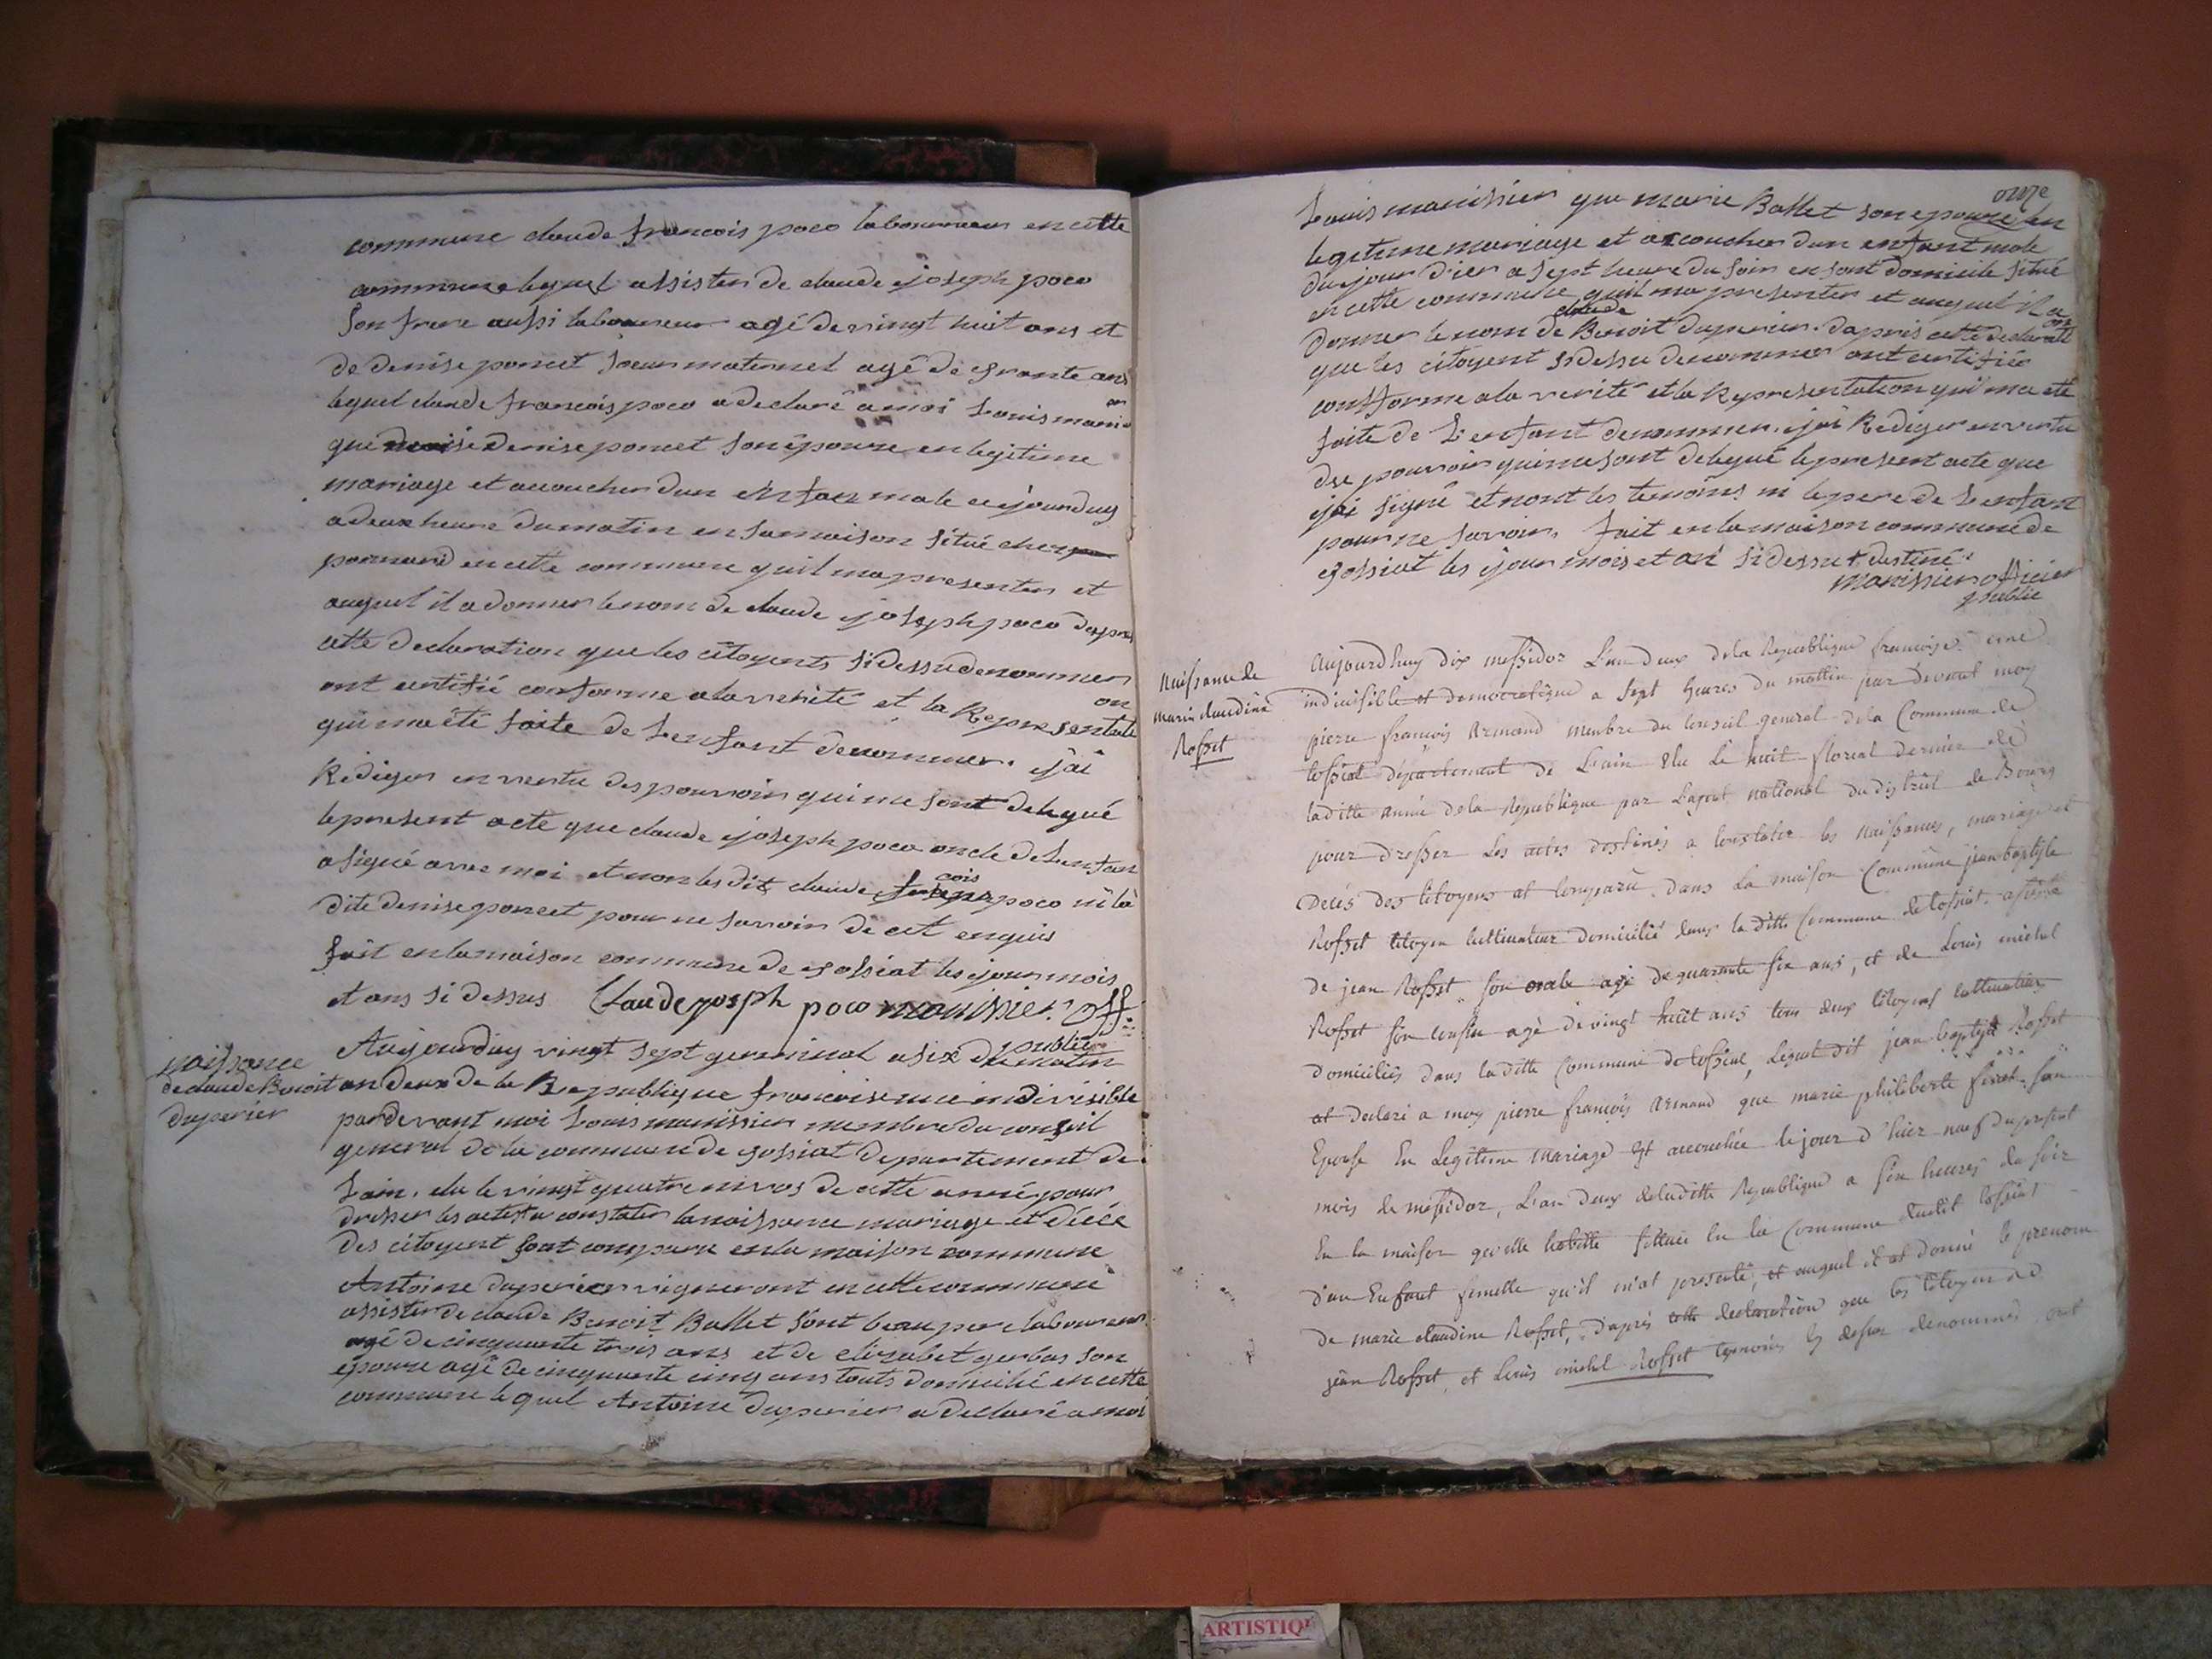 commune claude francois poco laboureur en cette
commune lequel assister de claude joseph poco
son frere aussi laboureur agé de vingt huit ans et
de denise poncet soeur maternel agé de trante ans
lequel claude francois poco a declaré a moi Louis mani er
que denise poncet son épouse en legitime
mariage et accoucher dun enfan male ce jourduy
a deux heure du matin en sa maison situé chez
ponnard en cette commune quil ma presenter et
auquel il a donner le nom de claude joseph poco dapres
cette declaration que les citoyents si dessu denommer
ont certifié conforme a la verité et la Representati on
qui ma été faite de Lenfant denommer. j'ai
Rediger en vertu des pouvoir qui me sont delegué
le present acte que claude joseph poco oncle de Lenfan
a signé avec moi et non les dit claude francois poco ni la
dite denise poncet pour ne savoir de cet enquis
fait en la maison commune de tossiat les jour mois
et ans si dessus Claude joseph poco manissier off
public
naissance
de claude Benoit
duperier
Aujourduy vingt sept germinal a six du matin
an deux de la Republique francoise une indivisible
pardevant moi Louis manissier membre du conseil
general de la commune de tossiat departement de
Lain. elu le vingt quatre nivos de cette anné pour
dresser les actes a constater la naissance mariage et décéé
des citoyent sont comparu en la maison commune
Antoine duperier vigneront en cette commune
assister de claude Benoit Ballet sont beau pere laboureur
agé de cinquante trois ans et de elizabet gerbas son
épouse agé de cinquante cinq ans touts domicilié en cette
commune lequel Antoine duperier a declaré a moi
onze
Louis manissier que marie Ballet son epouze en
legitime mariage et accoucher dun enfant male
du jour dier a sept heure du soir en sont domicile situé
en cette commune quil ma presenter et auquel il a
donner le nom de claude Benoit duperier. dapres cette declarati on
que les citoyent si dessu denommer ont certifiée
conforme a la verité et la Representation qui ma été
faite de Lenfant denommer. jai Rediger en vertu
des pouvoir qui me sont delegué le present acte que
jai signé et nont les temoins ni le pere de Lenfant
pour ne savoir. fait en la maison commune de
tossiat les jour mois et an si dessu destiné
manissier officier
public
Naissance de
marie claudine
Rosset
Aujourdhuy dix messidor L'an deux de la Republique francoise une
indivisible et democratique a sept heures du mattin par devant moy
pierre françois Armand membre du Conseil general de la Commune de
tossiat département de L'ain élu Le huit floreal dernier de
laditte année de la République par L'agent national du district de Bourg
pour dresser Les actes destinés a Constater les Naissances, mariage et
Decès des Citoyens at Comparu dans La maison Commune jean baptiste
Rosset Citoyen cultivateur domicilié dans la ditte Commune de tossiat. assisté
de jean Rosset son oncle agé de quarante six ans, et de Louis michel
Rosset son Cousin agé de vingt huit ans tous deux Citoyens cultivateurs
domiciliés dans laditte Commune de tossiat, Lequel dit jean baptiste Rosset
at declaré a moy pierre françois Armand que marie philiberte son
Epouse En Legitime mariage est accouchée le jour d'hier neuf du present
mois de messidor, L'an deux de laditte Republique a six heures du soir
En la maison qu'elle habitte située En la Commune dudit tossiat
d'un Enfant femelle qu'il m'at presenté, et auquel il at donné le prenom
de marie claudine Rosset, D'après cette declaration que les Citoyens
jean Rosset, et Louis michel Rosset temoins Cy dessus denommés ont